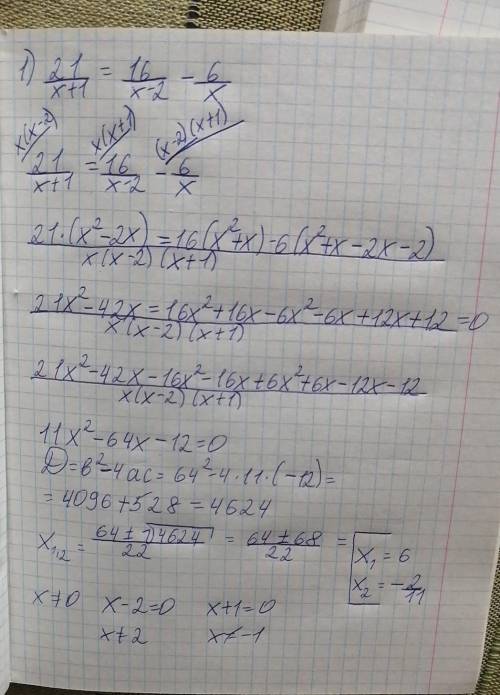 1) 21/(x+1) = 16/(x-2) - 6/x
x(x-2) x(x+1) (x-2)(x+1)
21/(x+1) = 16/(x-2) - 6/x
21·(x²-2x) = 16(x²+x)-6(x²+x-2x-2)
x(x-2)(x+1)
21x²-42x=16x²+16x-6x²-6x+12x+12 =0
x(x-2)(x+1)
21x²-42x-16x²-16x+6x²+6x-12x-12
x(x-2)(x+1)
11x²-64x-12=0
D=b²-4ac=64²-4·11·(-12)=
=4096+528=4624
x₁,₂ = (64±√4624)/22 = (64±68)/22 = [x₁=6
x₂=-2/11
x≠0 x-2=0 x+1=0
x≠2 x≠-1